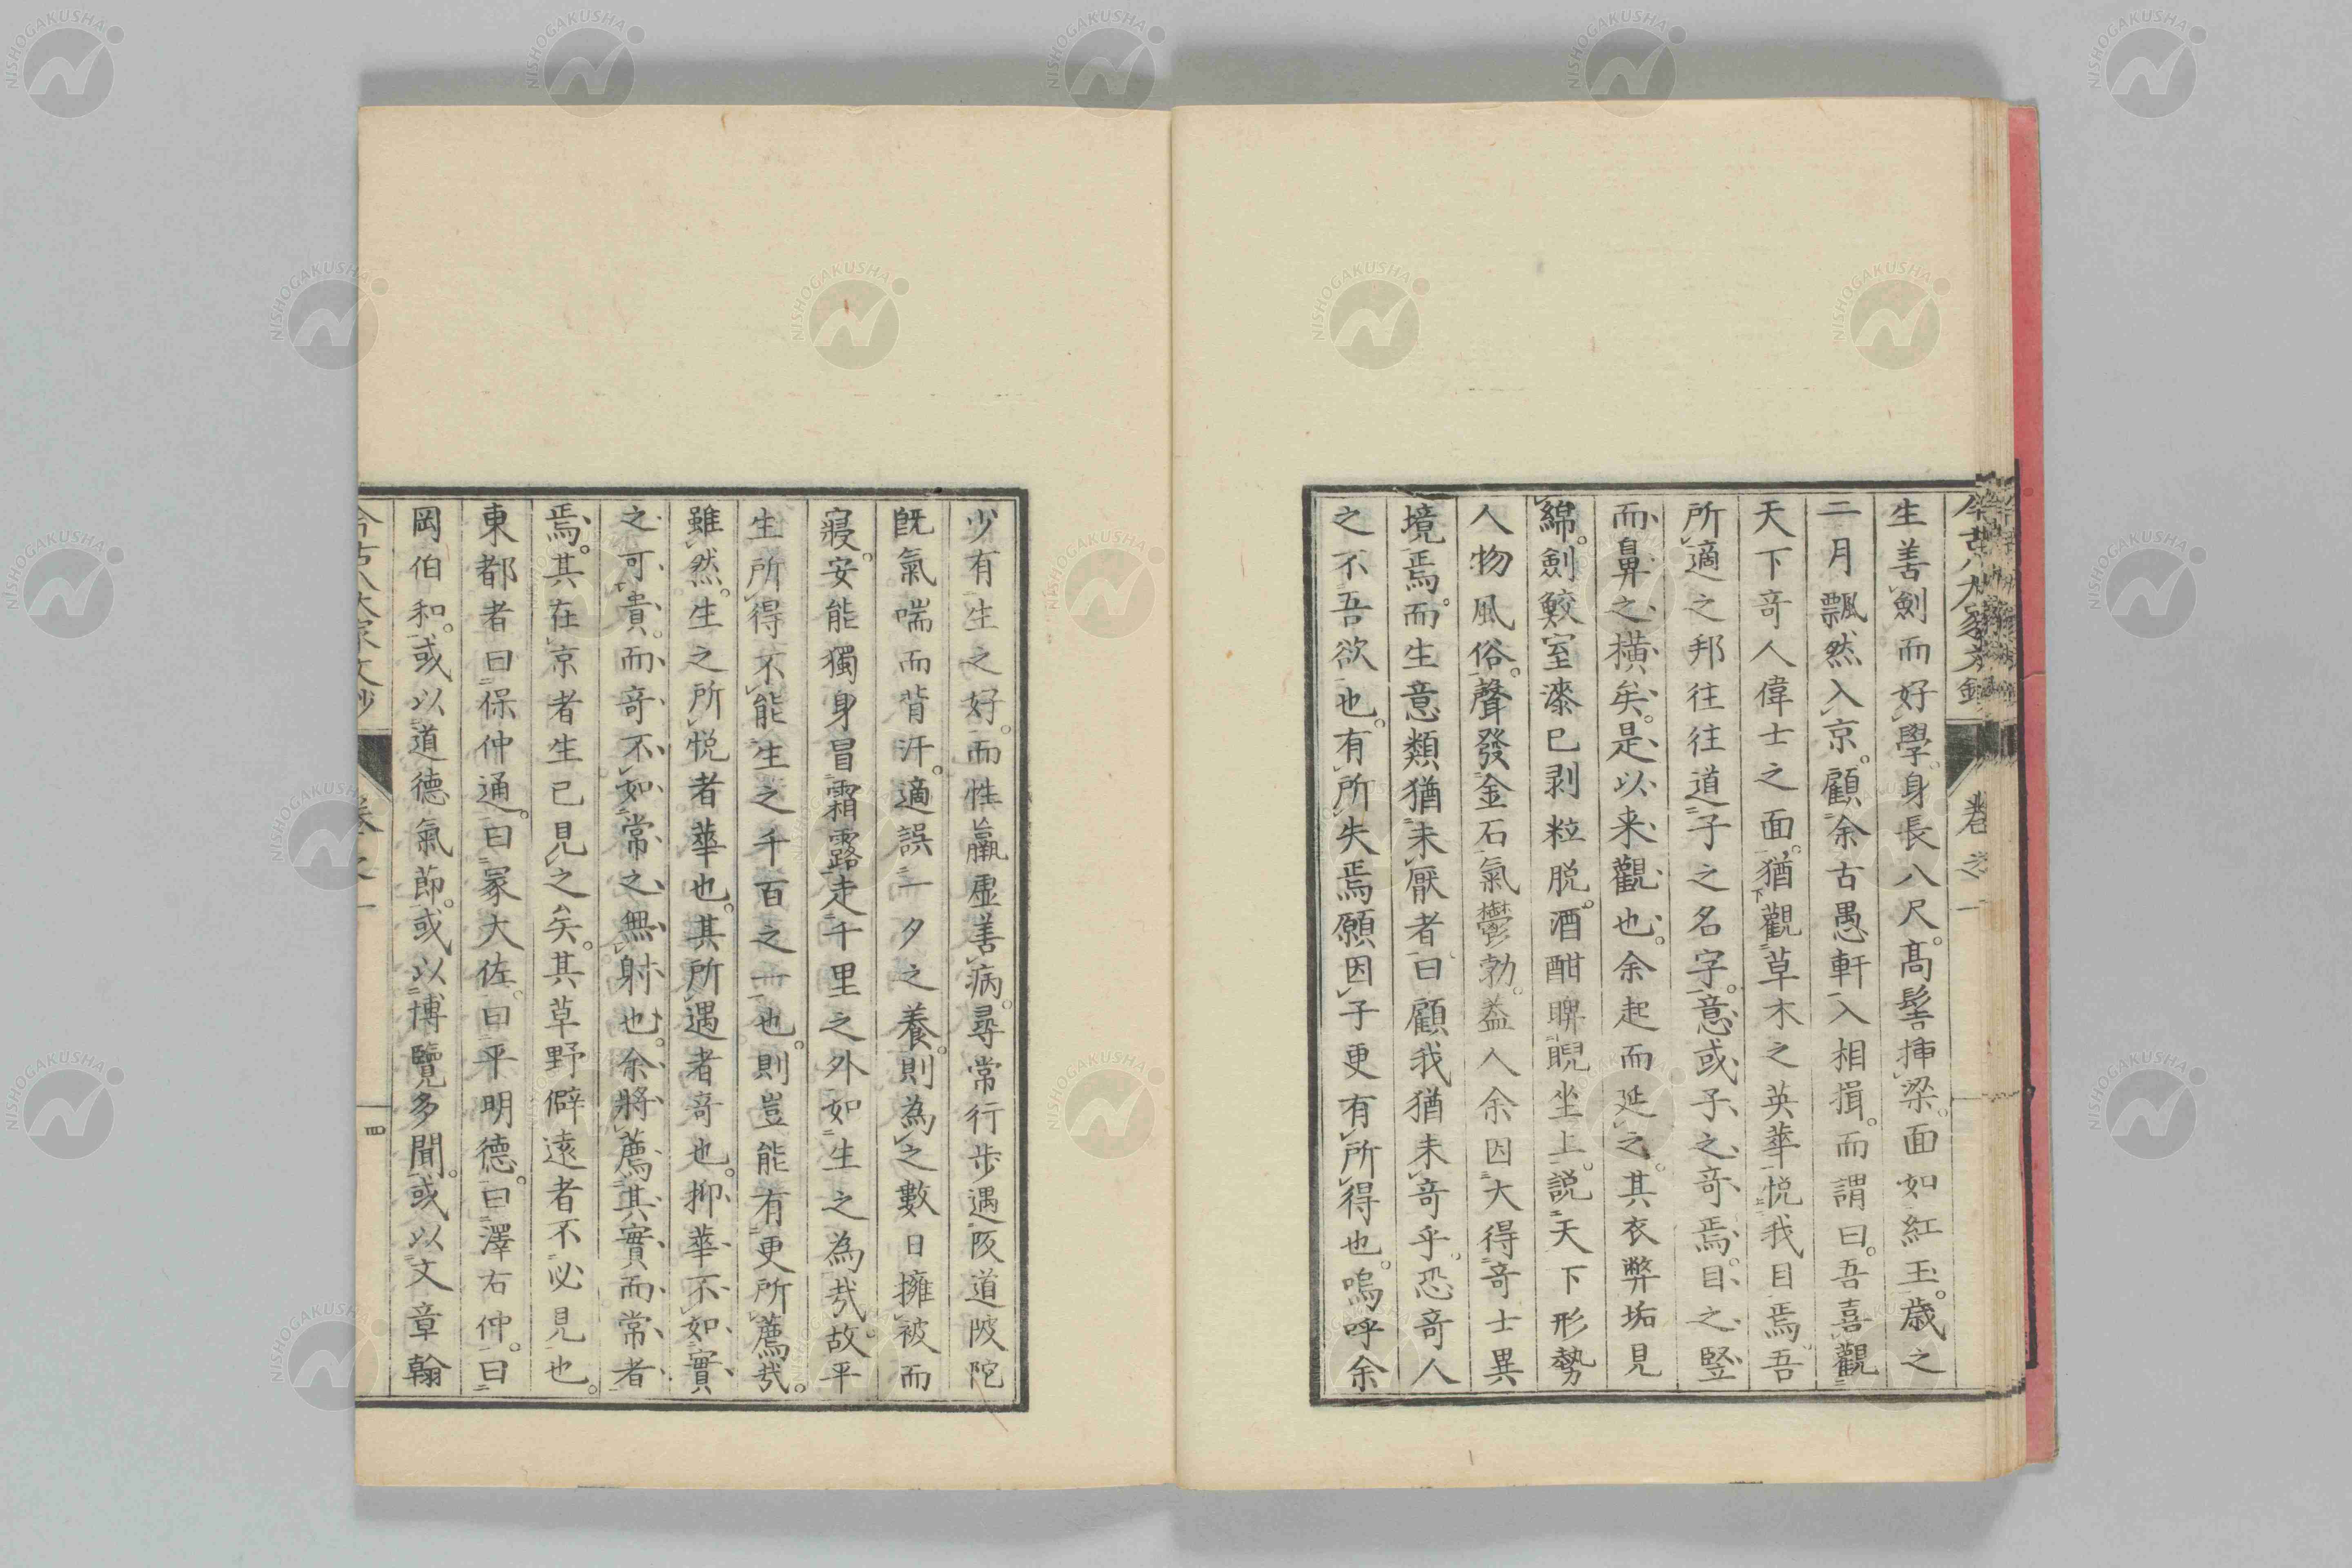 生善劍而好學身長八尺。高髻挿梁。面如紅玉。歳之
二月飄然入京。顧余古愚軒入相揖。而謂曰。吾喜觀
天下奇人偉士之面。猶觀草木之英華悦我目焉。吾
所適之邦往往道子之名字。意或子之奇焉。目之竪
而鼻之横矣。是以来觀也。余起而延之。其衣弊垢見
綿。劍鮫室漆已剥粒脱。酒酣睥睨坐上。説天下形勢
人物風俗。聲發金石氣鬱勃。益人余因大得奇士異
境焉。而生意類猶未厭者。曰顧我猶未奇乎。恐奇人
之不吾欲也。有所失焉願因子更有所得也。嗚呼余
少有生之好。而性羸虚善病。尋常行歩遇阪道陂陀
既氣喘而背汗。適誤一夕之養。則為之數日擁被而
寢。安能獨身冒霜露走千里之外如生之為哉。故平
生所得不能生之千百之一也。則豈能有更所薦哉。
雖然。生之所悦者華也。其所遇者奇也。抑華不如實
之可貴。而奇不如常之無射也。余將薦其實而常者
焉。其在京者生已見之矣。其草野僻遠者不必見也。
東都者曰保仲通。曰冢大佐。曰平明德。曰澤右仲。曰
岡伯和。或以道德氣節。或以博覽多聞。或以文章翰
今古八大家文鈔
卷之一
四
NISHOGAKUSHA